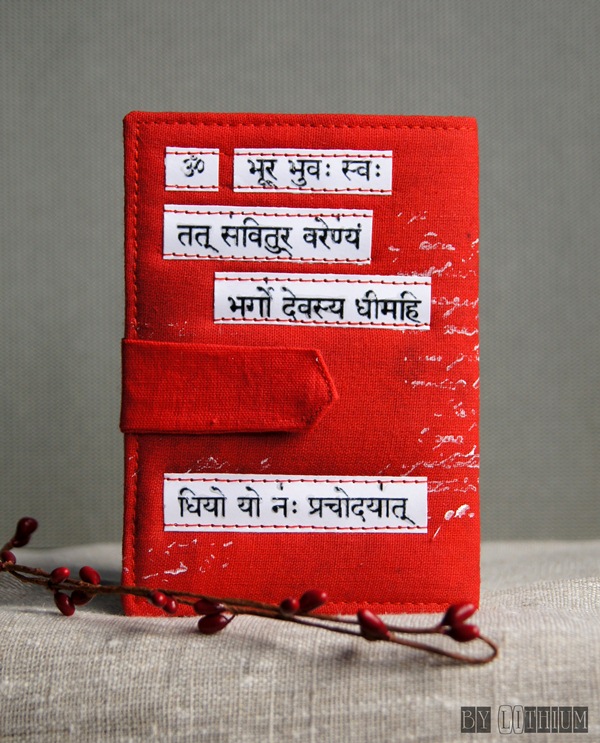 ॐ भूर् भुवः स्वः
तत् स॑वितुर् वरे॑ण्यं
भर्गो॑ देवस्य धीमहि
धियो यो न॑ः प्रचोदया॑त्
BY LOTHIUM